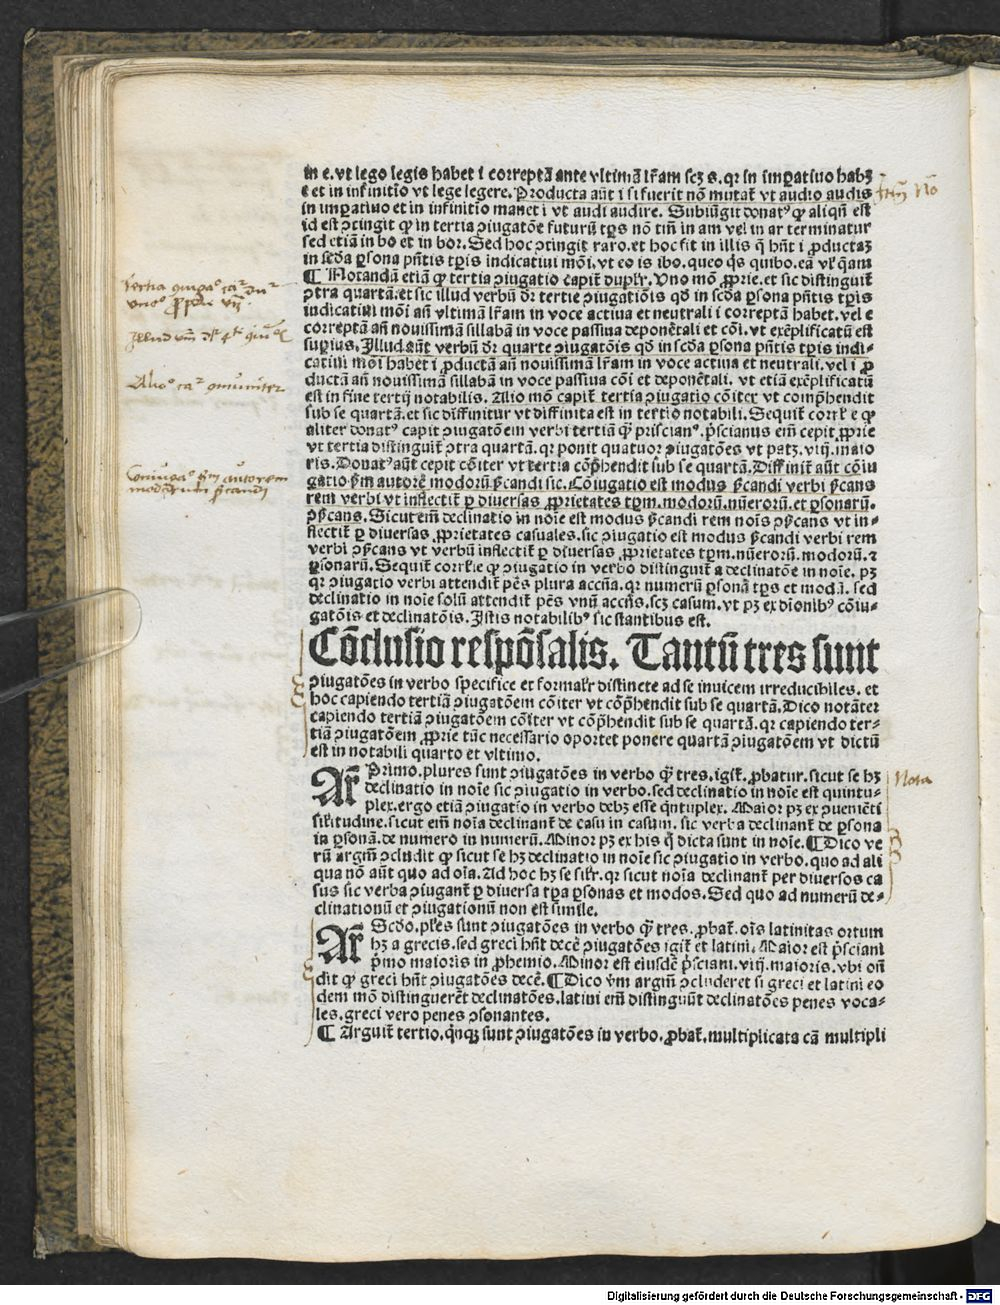 in e. vt lego legis habet i correptã ante vltimã lr̃am scꝫ s. qr in imꝑatiuo habꝫ
e et in infinitio vt lege legere. Producta aũt i si fuerit nõ mutat̃ vt audio audis
in imꝑatiuo et in infinitio manet i vt audi audire. Subiũgit donatꝰ ꝙ aliqñ est
id est ꝯtingit ꝙ in tertia ꝯiugatõe futurũ tꝑs nõ tm̃ in am vel in ar terminatur
sed etiã in bo et in bor. Sed hoc ꝯtingit raro. et hoc fit in illis q̃ hñt i ꝓductaꝫ
in scďa ꝑsona pñtis tꝑis indicatiui mõi. vt eo is ibo. queo q̃s quibo. eã vl̕ q̃am
¶ Notandũ etiã ꝙ tertia ꝯiugatio capit̃ duplr̕. Vno mõ ꝓprie. et sic distinguit̃
ꝯtra quartã. et sic illud verbũ dr̃ tertie ꝯiugatiõis qď in scďa ꝑsona pñtis tꝑis
indicatiui mõi añ vltimã lr̃am in voce actiua et neutrali i correptã habet. vel e
correptã añ nouissimã sillabã in voce passiua deponẽtali et cõi. vt exẽplificatũ est
supius. Illud aũt verbũ dr̃ quarte ꝯiugatõis qď in scďa ꝑsona pñtis tꝑis indi-
catiui mõi habet i ꝓductã añ nouissimã lr̃am in voce actiua et neutrali. vel i ꝓ
ductã añ nouissimã sillabã in voce passiua cõi et deponẽtali. vt etiã exẽplificatũ
est in fine tertij notabilis. Alio mõ capit̃ tertia ꝯiugatio cõiter vt comp̃hendit
sub se quartã. et sic diffinitur vt diffinita est in tertio notabili. Sequit̃ correl̕e ꝙ
aliter donatꝰ capit ꝯiugatõem verbi tertiã q̃ꝫ priscianꝰ. p̃scianus em̃ cepit ꝓprie
vt tertia distinguit̃ ꝯtra quartã. qr ponit quatuor ꝯiugatões vt patꝫ. viij. maio
ris. Donatꝰ aũt cepit cõiter vt tertia cõp̃hendit sub se quartã. Diffinit̃ aũt cõiu
gatio ẜm autorẽ modorũ ẜcandi sic. Cõiugatio est modus ẜcandi verbi ẜcans
rem verbi vt inflectit̃ ꝑ diuersas ꝓprietates tꝑm. modorũ. nũerorũ. et ꝑsonarũ.
ꝯẜcans. Sicut em̃ declinatio in noĩe est modus ẜcandi rem noĩs ꝯẜcans vt in-
flectit̃ ꝑ diuersas ꝓprietates casuales. sic ꝯiugatio est modus ẜcandi verbi rem
verbi ꝯẜcans vt verbũ inflectit̃ ꝑ diuersas ꝓprietates tꝑm. nũerorũ. modorũ. ⁊
ꝑsonarũ. Sequit̃ correl̕e ꝙ ꝯiugatio in verbo distinguit̃ a declinatõe in noĩe. pꝫ
qr ꝯiugatio verbi attendit̃ pẽs plura accñtia. qr numerũ ꝑsonã tꝑs et modũ. sed
declinatio in noĩe solũ attendit̃ pẽs vnũ accñs. scꝫ casum. vt pꝫ ex dictionibꝰ cõiu-
gatõis et declinatõis. Istis notabilibꝰ sic stantibus est.
Cõclusio respõsalis. Tantũ tres sunt
ꝯiugatões in verbo specifice et formalr̕ distincte ad se inuicem irreducibiles. et
hoc capiendo tertiã ꝯiugatõem cõiter vt cõp̃hendit sub se quartã. Dico notãter
capiendo tertiã ꝯiugatõem cõiter vt cõp̃hendit sub se quartã. qr capiendo ter-
tiã ꝯiugatõem ꝓprie tũc necessario oportet ponere quartã ꝯiugatõem vt dictũ
est in notabili quarto et vltimo.
Ar̃ Primo. plures sunt ꝯiugatões in verbo q̃ꝫ tres. igit̃. ꝓbatur. sicut se hꝫ
declinatio in noĩe sic ꝯiugatio in verbo. sed declinatio in noĩe est quintu-
plex. ergo etiã ꝯiugatio in verbo debꝫ esse q̃ntuplex. Maior pꝫ ex ꝯuenĩeti
similitudine. sicut em̃ noĩa declinant̃ de casu in casum. sic verba declinant̃ de ꝑsona
in ꝑsonã. de numero in numerũ. Minor pꝫ ex his q̃ dicta sunt in noĩe. ¶ Dico ve
rũ argm̃ ꝯcludit ꝙ sicut se hꝫ declinatio in noĩe sic ꝯiugatio in verbo. quo ad ali
qua nõ aũt quo ad oĩa. Ad hoc hꝫ se silr̕. qr sicut noĩa declinant̃ per diuersos ca
sus sic verba ꝯiugant̃ ꝑ diuersa tꝑa ꝑsonas et modos. Sed quo ad numerũ de-
clinationũ et ꝯiugationũ non est simile.
Ar̃ Scďo. pl̕es sunt ꝯiugatões in verbo q̃ꝫ tres. ꝓbat̃. oĩs latinitas ortum
hꝫ a grecis. sed greci hñt decẽ ꝯiugatões igit̃ et latini. Maior est p̃sciani
p̃mo maioris in ꝓhemio. Minor est eiusdẽ p̃sciani. viij. maioris. vbi oñ
dit ꝙ greci hñt ꝯiugatões decẽ. ¶ Dico ꝟm argm̃ ꝯcluderet si greci et latini eo
dem mõ distinguerẽt declinatões. latini em̃ distinguũt declinatões penes voca-
les. greci vero penes ꝯsonantes.
¶ Arguit̃ tertio. q̃nqꝫ sunt ꝯiugatões in verbo. ꝓbat̃. multiplicata cã multipli
Nota
Digitalisierung gefördert durch die Deutsche Forschungsgemeinschaft - DFG